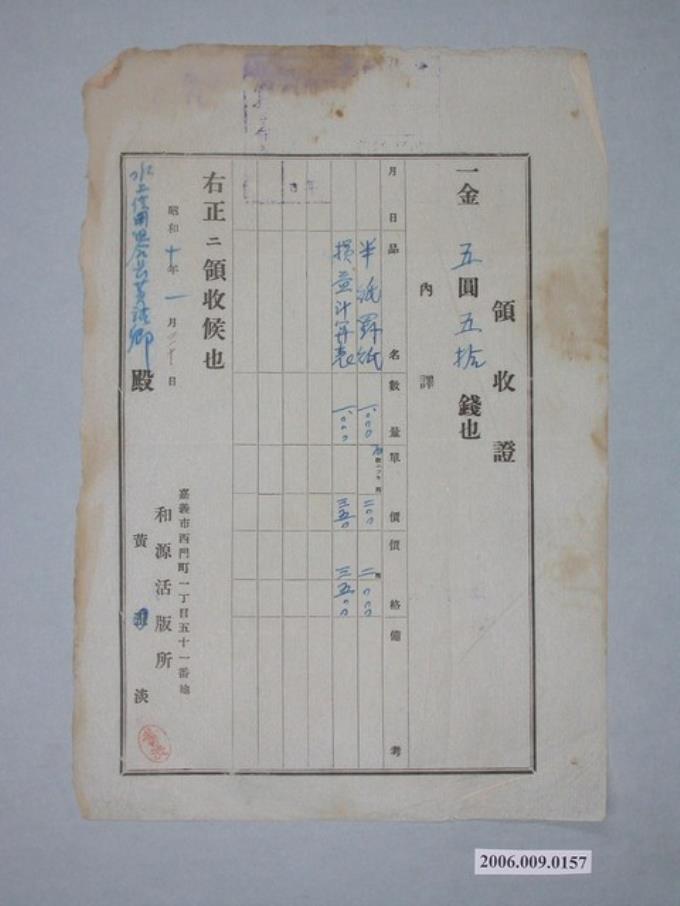 領收證
一金 五圓五拾錢也
內譯
月日 品名 數量 單價 價格 備考
半紙罫紙 一、〇〇〇 二〇〇 二〇〇〇
損益計算表 一、〇〇〇 三五〇 三五〇〇
右正ニ領收候也
昭和十年一月 日
水上信用組合 殿
嘉義市西門町一丁目五十一番地
和源活版所
黃 淡
2006.009.0157